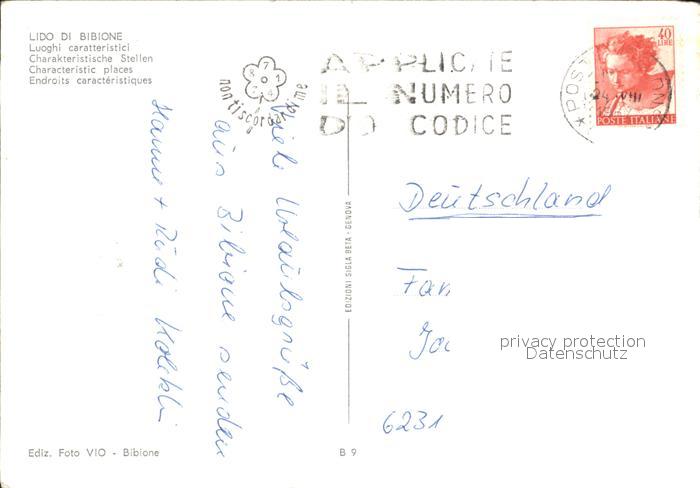 LIDO DI BIBIONE
Luoghi caratteristici
Charakteristische Stellen
Characteristic places
Endroits caractéristiques
non ti scordar di me
APPLICATE
IL NUMERO
DI CODICE
POST
24. VIII
40
LIRE
POSTE ITALIANE
Viele Urlaubsgrüße
aus Bibione senden
Hanne + Rudi
EDIZIONI SIGLA BETA - GENOVA
Deutschland
Fam
6231
privacy protection
Datenschutz
Ediz. Foto VIO - Bibione
B 9